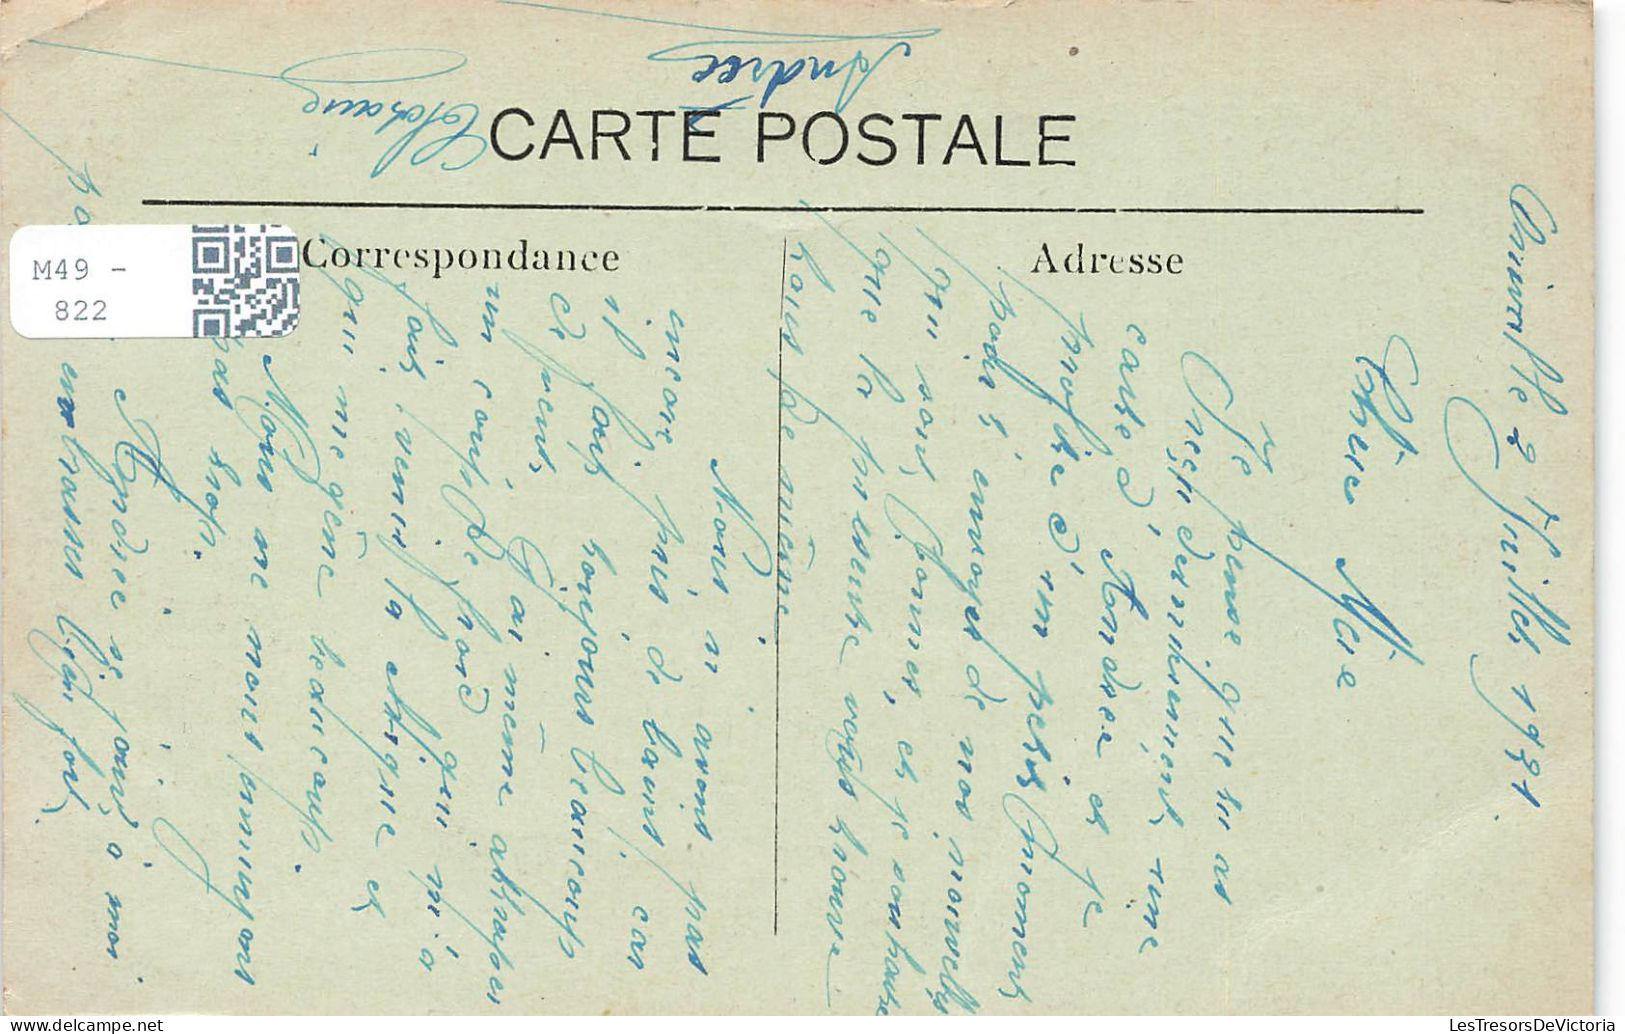 CARTE POSTALE
Correspondance
Adresse
M49 -
822
2 Juillet 1931
Chère Mère
Je pense que tu as
reçu dernièrement une
carte d'Andrée et je
profite d'un petit moment
pour t'envoyer de nos nouvelles
qui sont bonnes, et je souhaite
que la présente vous trouve
tous de même.
Nous n'avons pas
encore pris de bains, car
il fait toujours beaucoup
de vent. J'ai même attrapé
un coup de froid qui m'a
fait venir la
qui me gêne beaucoup.
Nous ne nous ennuyons
pas trop.
Andrée se joint à moi
embrasser bien fort.
Andrée
LesTresorsDeVictoria